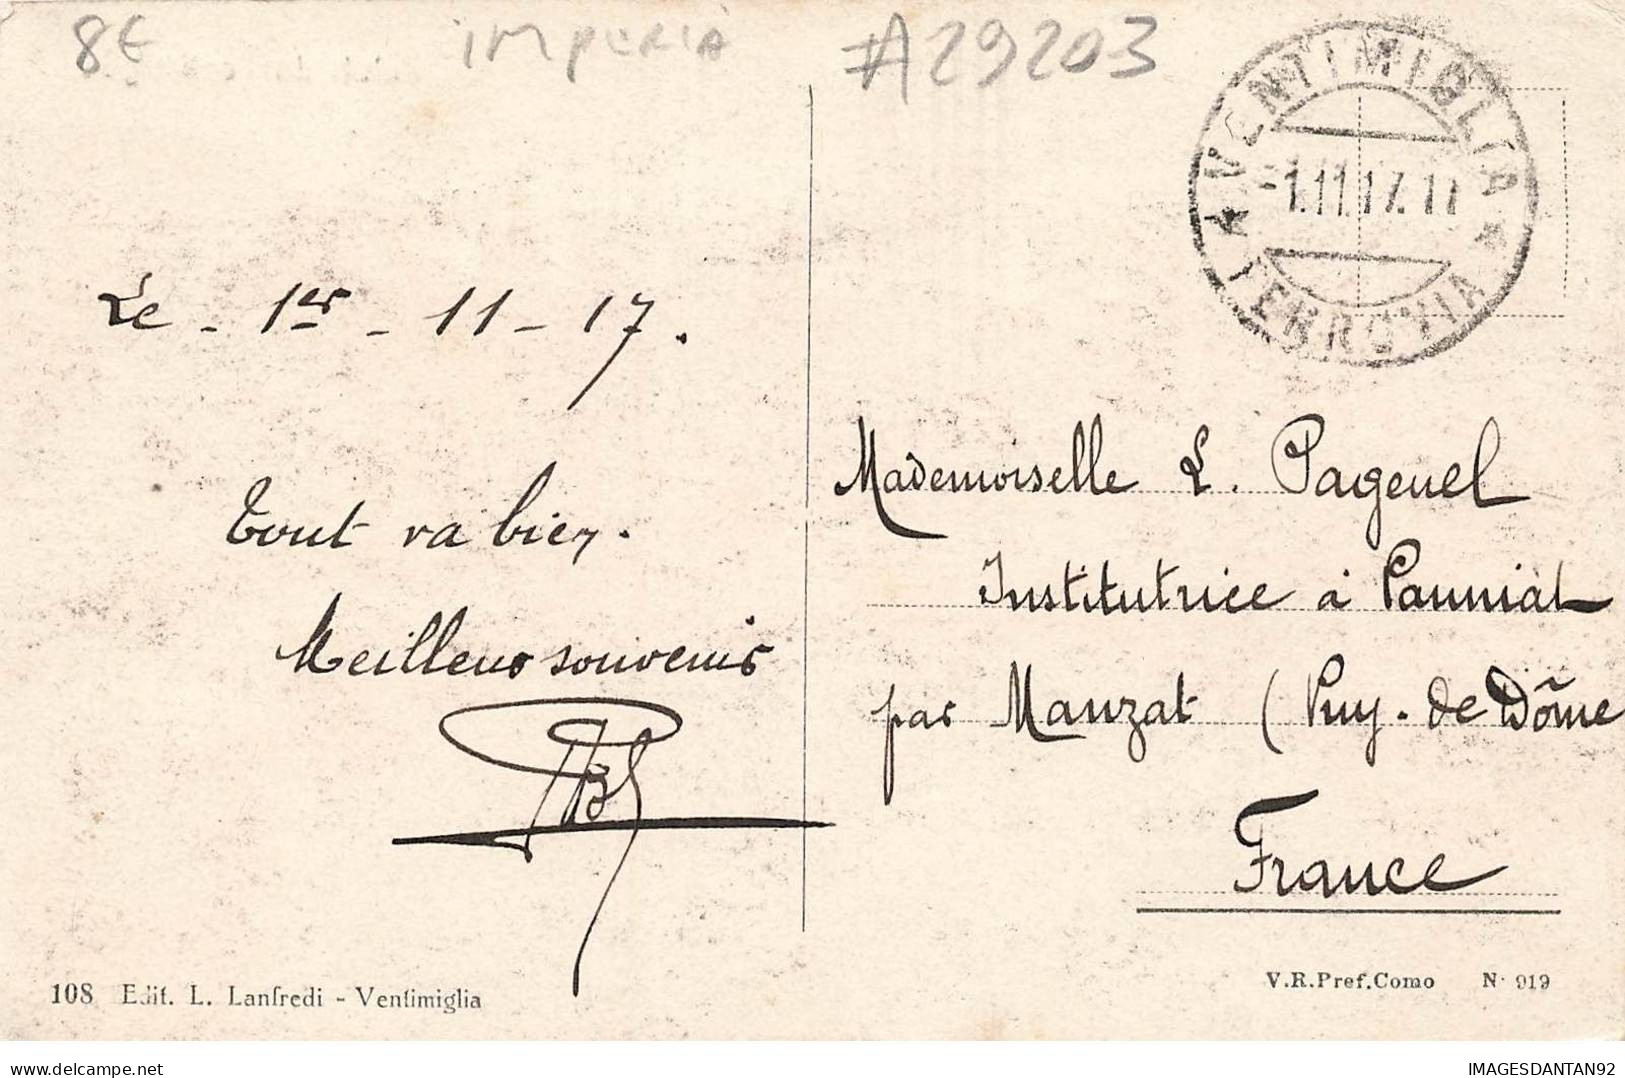 8€ IMPERIA #A29203
VENTIMIGLIA
-1.11.17.17
* FERROVIA *
Le - 1er - 11 - 17.
Tout va bien.
Meilleurs souvenirs
Mademoiselle L. Pagenel
Institutrice à Pauniat
par Manzat (Puy-de Dôme
France
108 Edit. L. Lanfredi - Ventimiglia
V.R.Pref.Como N· 919
IMAGESDANTAN92